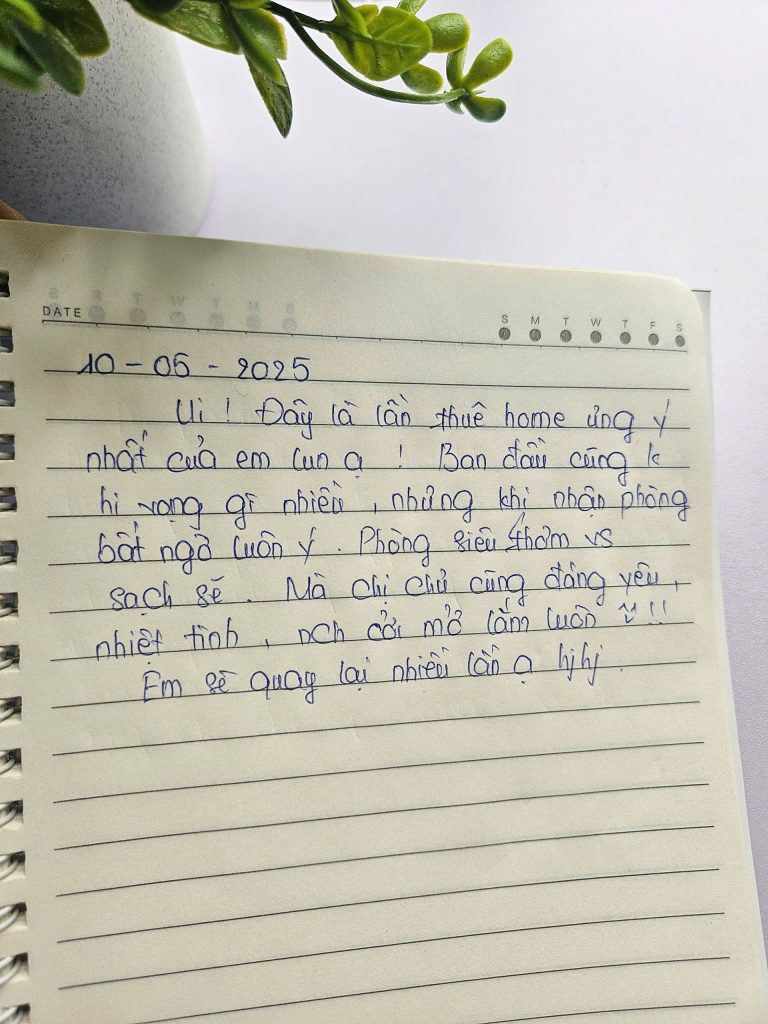 DATE
S M T W T F S
10 - 05 - 2025
Ui ! Đây là lần thuê home ưng ý
nhất của em lun ạ ! Ban đầu cũng k
hi vọng gì nhiều , nhưng khi nhận phòng
bất ngờ luôn ý . Phòng siêu thơm vs
sạch sẽ . Mà chị chủ cũng đáng yêu ,
nhiệt tình , nch cởi mở lắm luôn !!
Em sẽ quay lại nhiều lần ạ hjhj .